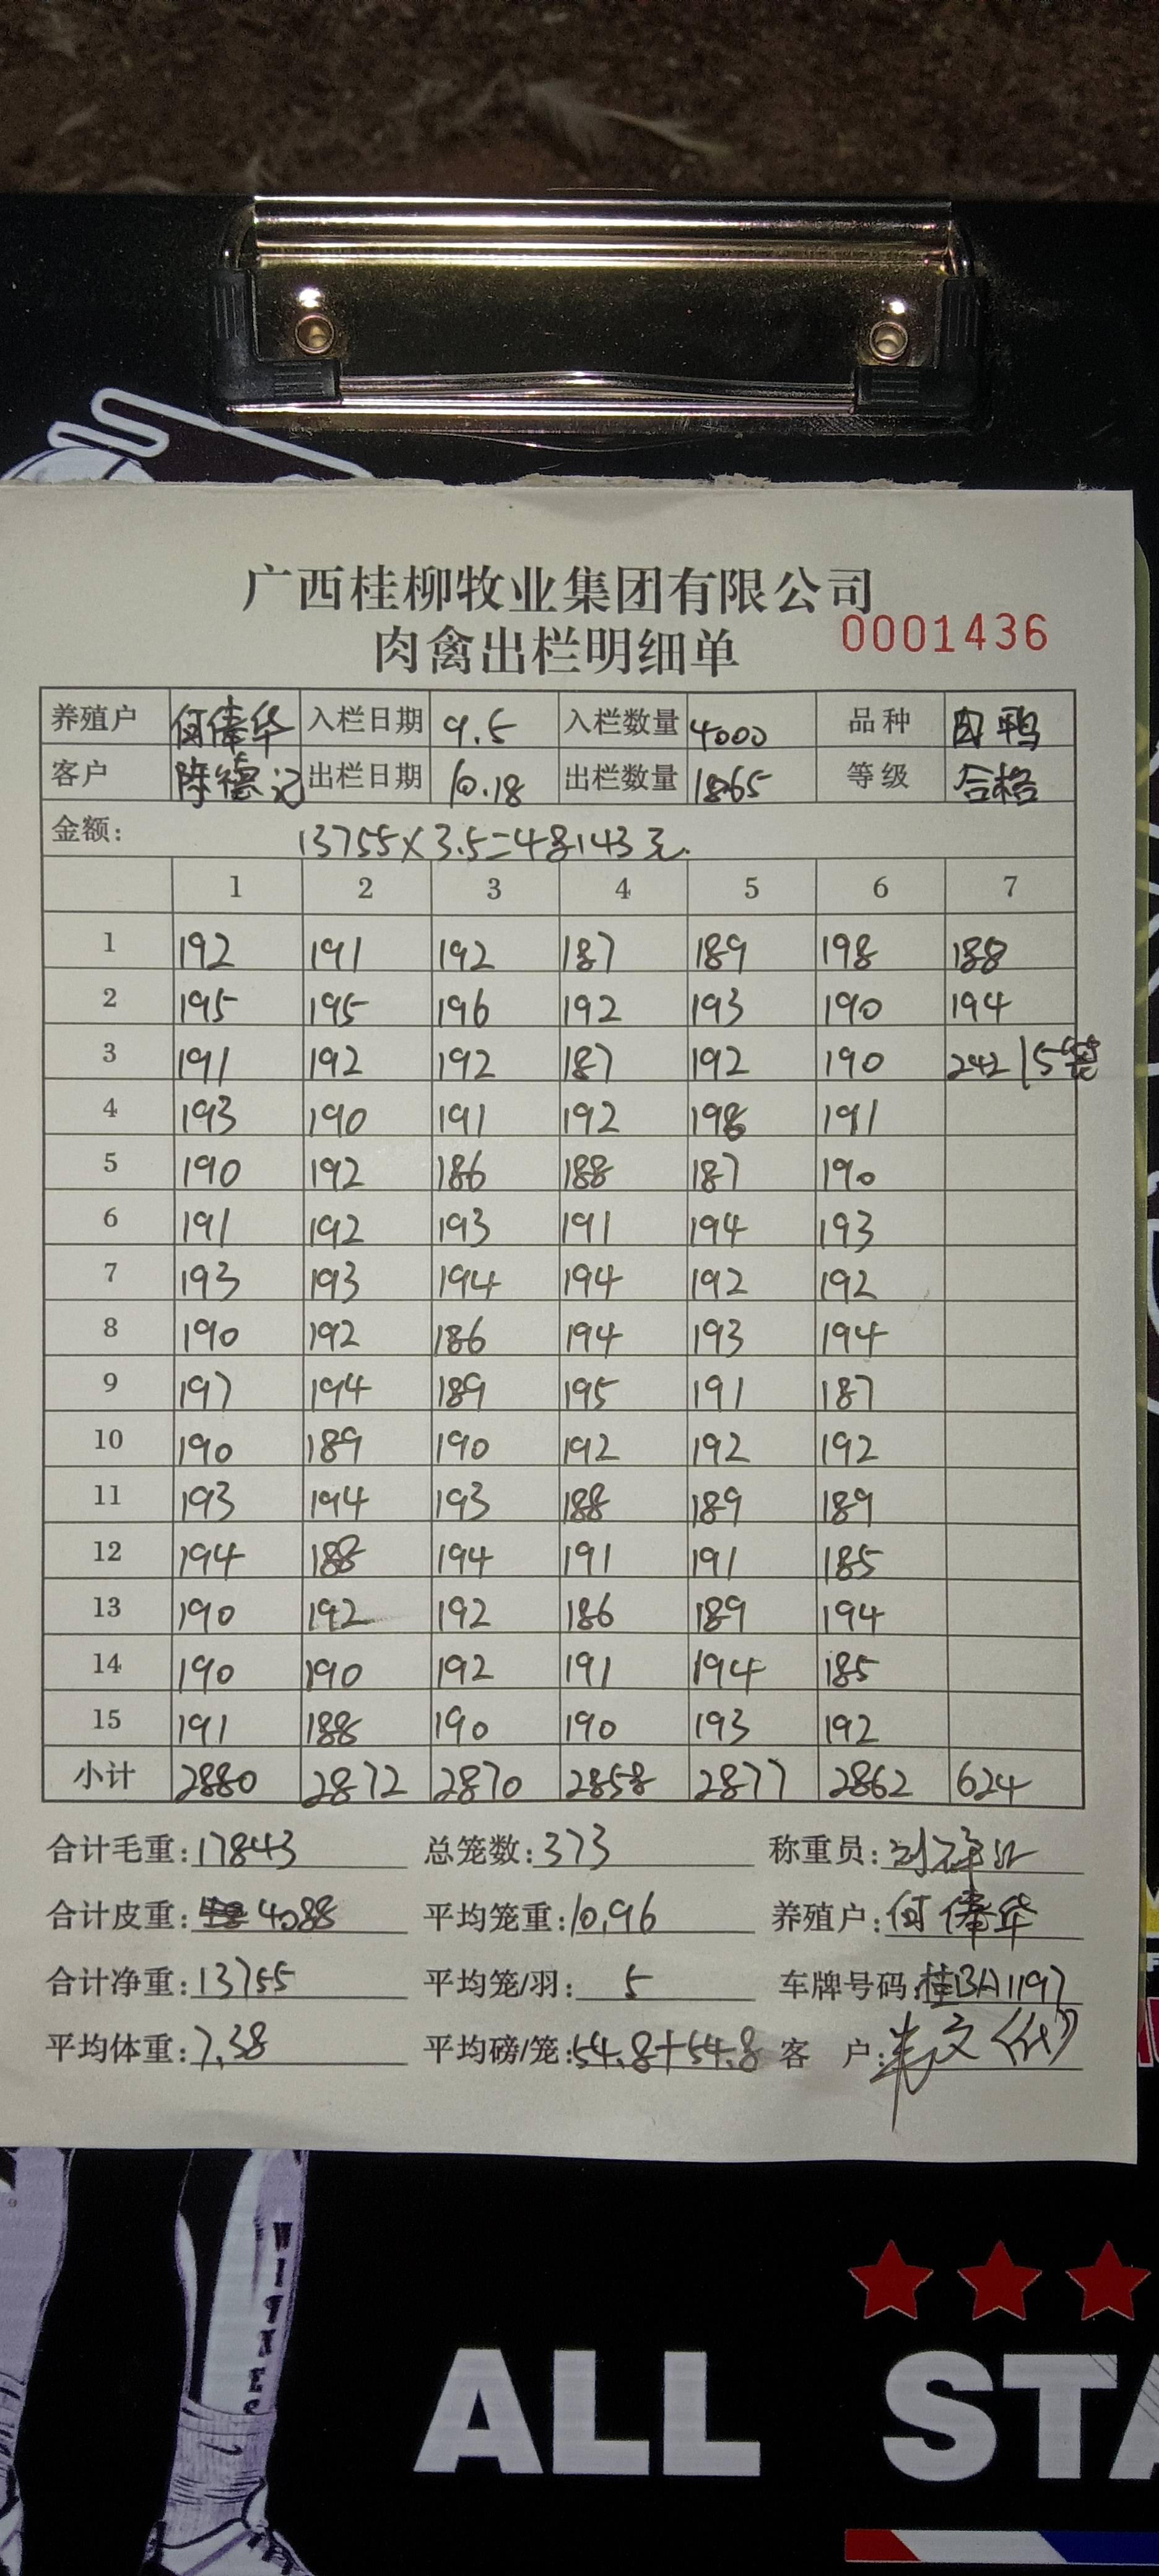 广西桂柳牧业集团有限公司
肉禽出栏明细单 0001436
养殖户 何偉华 入栏日期 9.5 入栏数量 4000 品种 肉鸭
客户 陈德记 出栏日期 10.18 出栏数量 1865 等级 合格
金额: 13755×3.5=48143元.
1 2 3 4 5 6 7
1 192 191 192 187 189 198 188
2 195 195 196 192 193 190 194
3 191 192 192 187 192 190 242 15笼
4 193 190 191 192 198 191
5 190 192 186 188 187 190
6 191 192 193 191 194 193
7 193 193 194 194 192 192
8 190 192 186 194 193 194
9 197 194 189 195 191 187
10 190 189 190 192 192 192
11 193 194 193 188 189 189
12 194 188 194 191 191 185
13 190 192 192 186 189 194
14 190 190 192 191 194 185
15 191 188 190 190 193 192
小计 2880 2872 2870 2858 2877 2862 624
合计毛重: 17843 总笼数: 373 称重员:
合计皮重: 4088 平均笼重: 10.96 养殖户: 何偉华
合计净重: 13755 平均笼/羽: 5 车牌号码: 桂BA1197
平均体重: 7.38 平均磅/笼: 54.8+54.8 客 户:
ALL STA